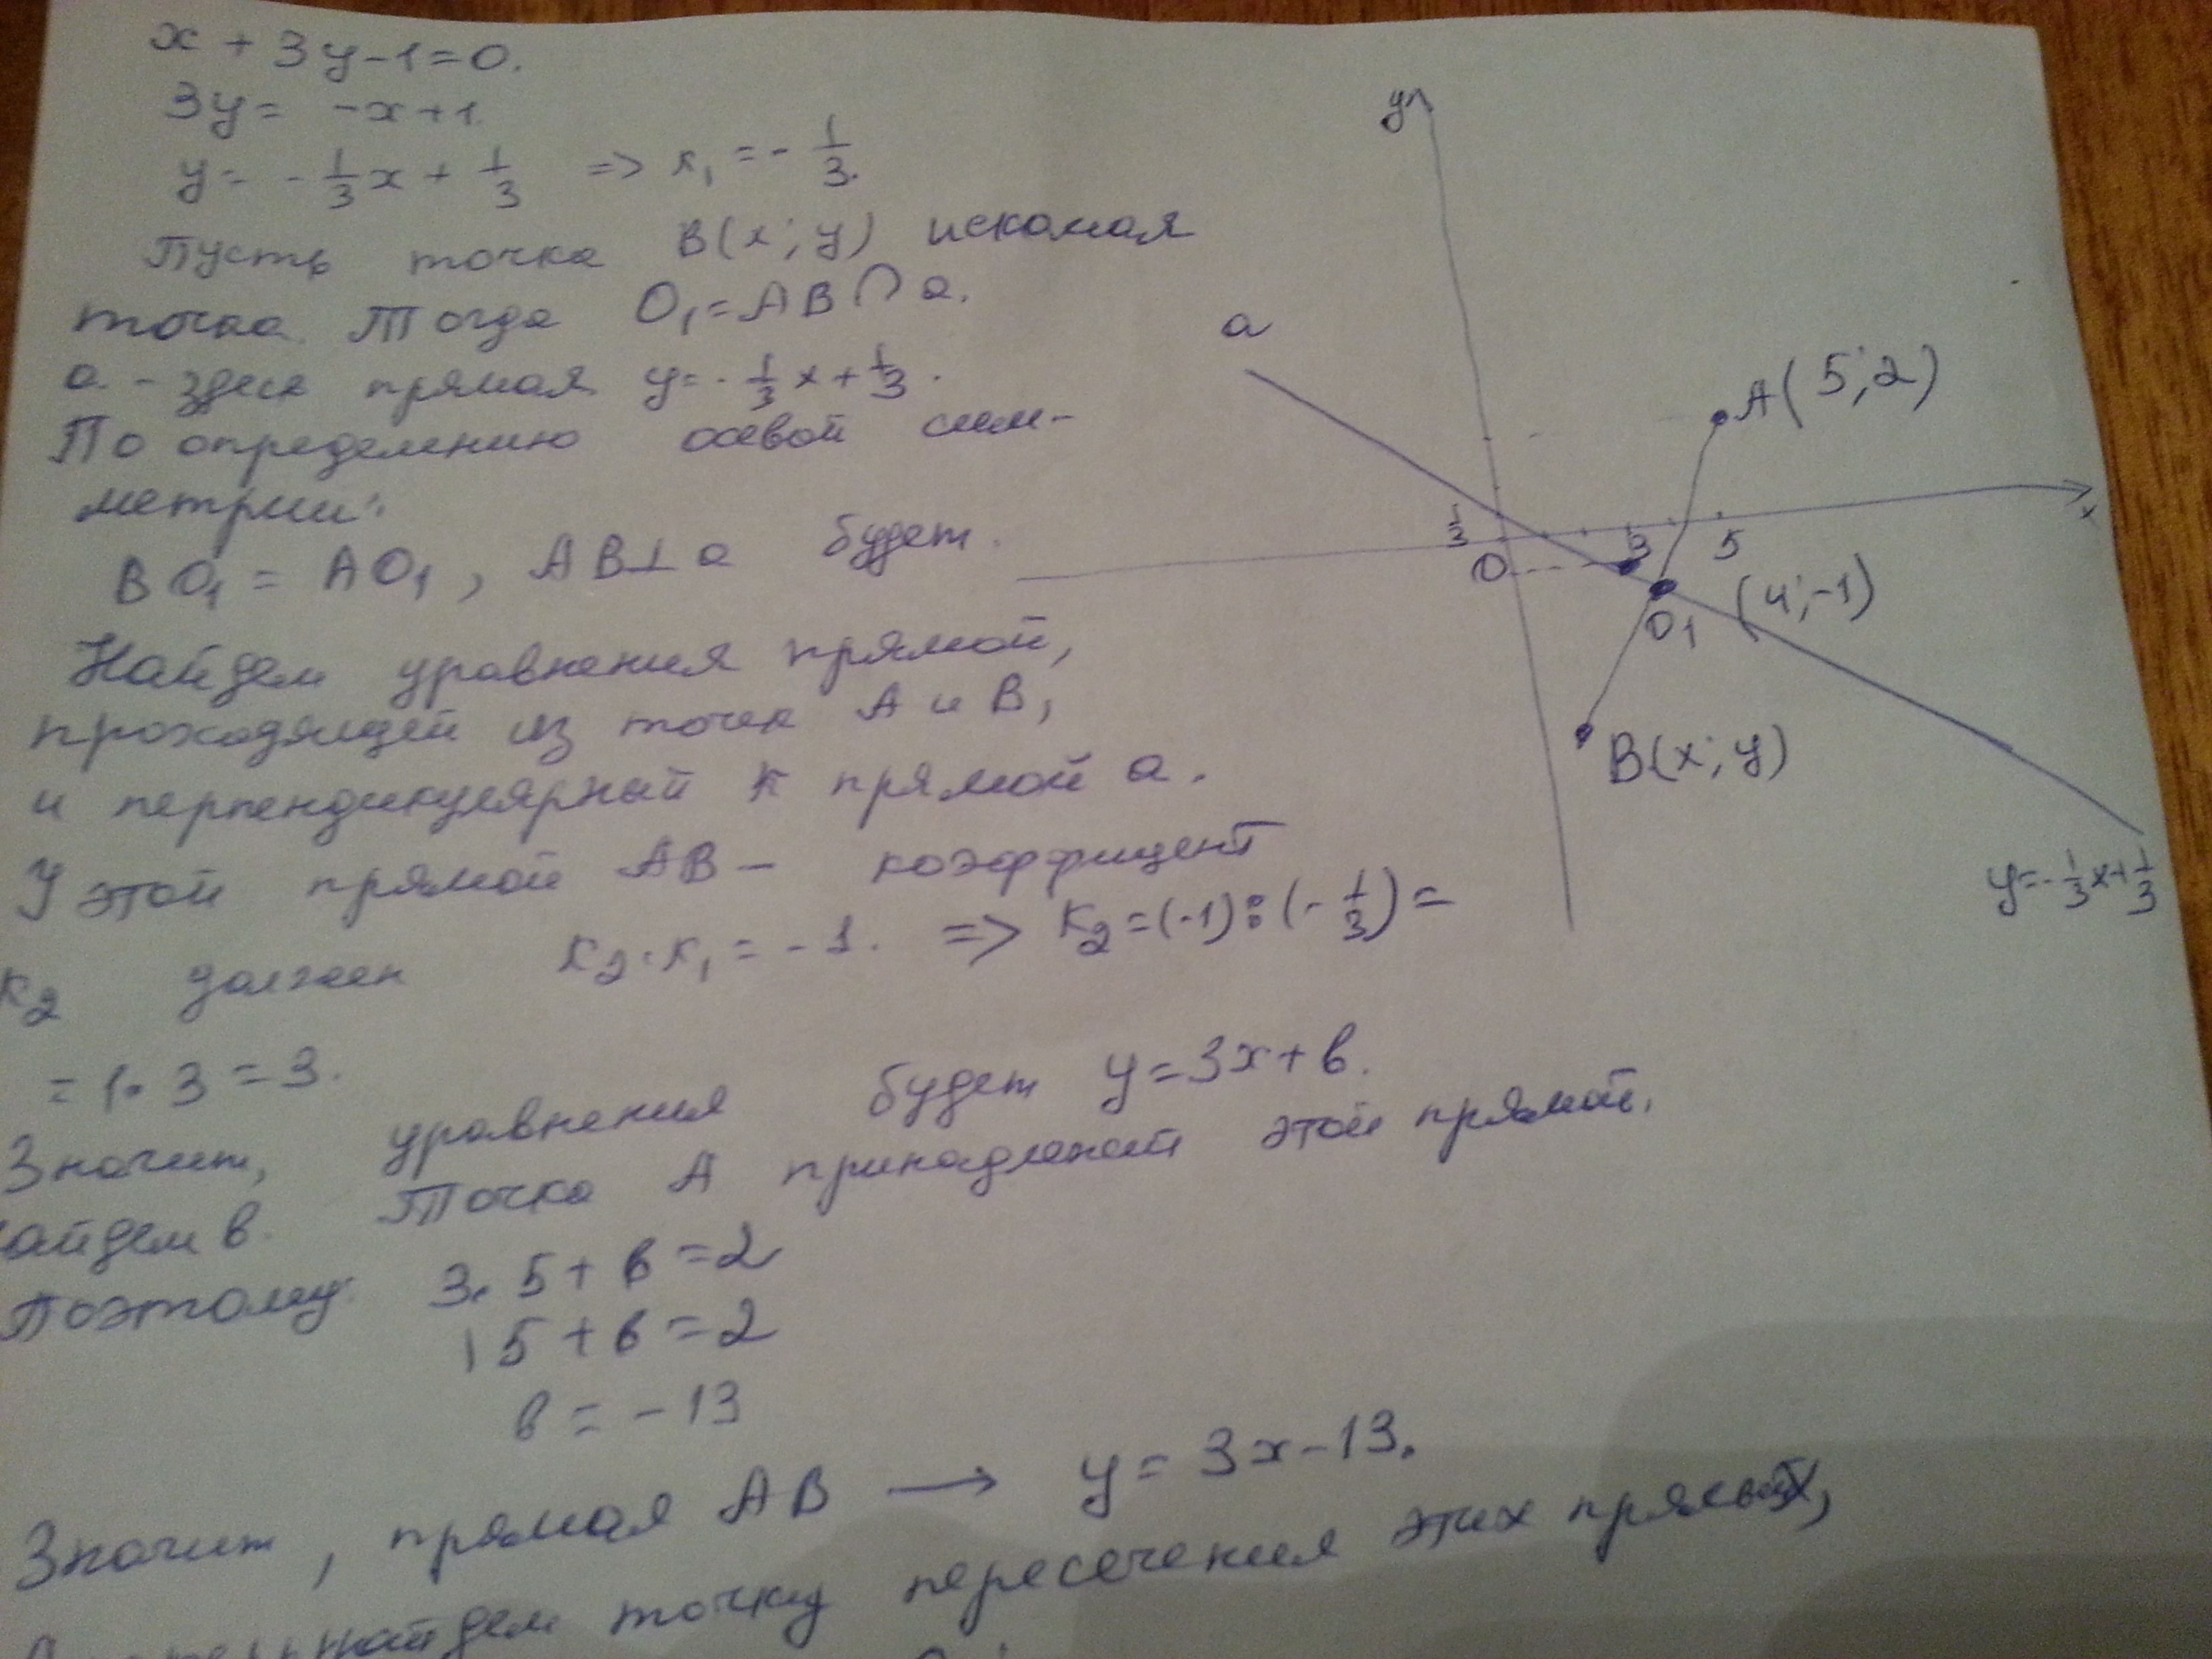 x + 3y - 1 = 0.
3y = -x + 1.
y = -1/3 x + 1/3 => к₁ = - 1/3.
Пусть точка B(x; y) искомая
точка. Тогда O₁ = AB ∩ a.
a - здесь прямая y = -1/3 x + 1/3.
По определению осевой сим-
метрии:
BO₁ = AO₁, AB ⊥ a будет.
Найдем уравнения прямой,
проходящей из точек A и B,
и перпендикулярный к прямой a.
У этой прямой AB - коэффицент
к₂ должен к₂ · к₁ = -1. => к₂ = (-1) : (-1/3) =
= 1 · 3 = 3.
Значит, уравнения будет y = 3x + в.
айдем в. Точка A принадлежит этой прямой.
Поэтому: 3 · 5 + в = 2
15 + в = 2
в = -13
Значит, прямая AB → y = 3x - 13.
найдем точку пересечения этих прямых,
y
a
A(5; 2)
x
1/3
3
5
O
O₁
(4; -1)
B(x; y)
y = -1/3 x + 1/3